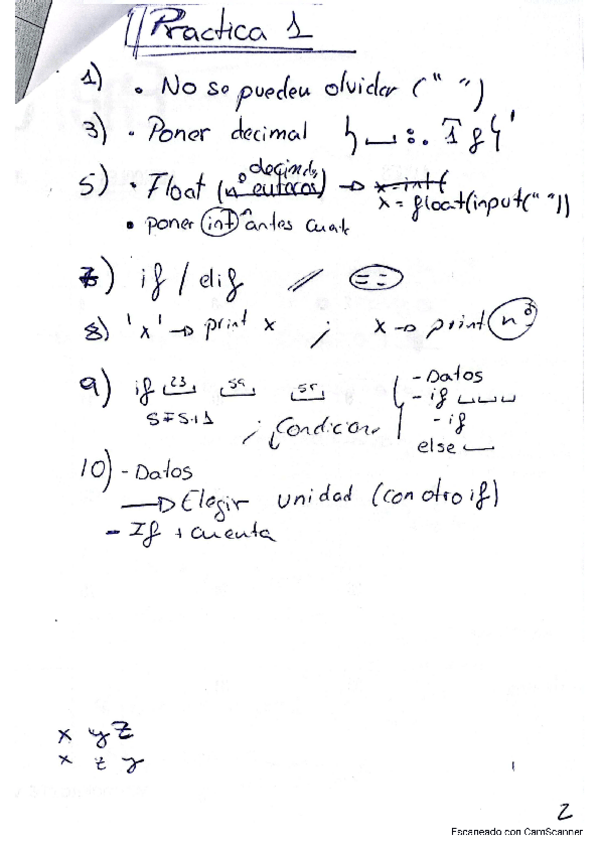 Practica 1
1) • No se pueden olvidar (" ")
3) • Poner decimal } :. 1 f }'
5) • Float (nº enteros) → x = int(
decimales
x = float(input(" "))
• poner int antes
7) if / elif // ==
8) 'x' → print x ; x → print nº
9) if 23 59 59
- Datos
- if
- if
else
; Condicion
10) - Datos
→ Elegir unidad (con otro if)
- If + cuenta
x y z
x z y
2
Escaneado con CamScanner